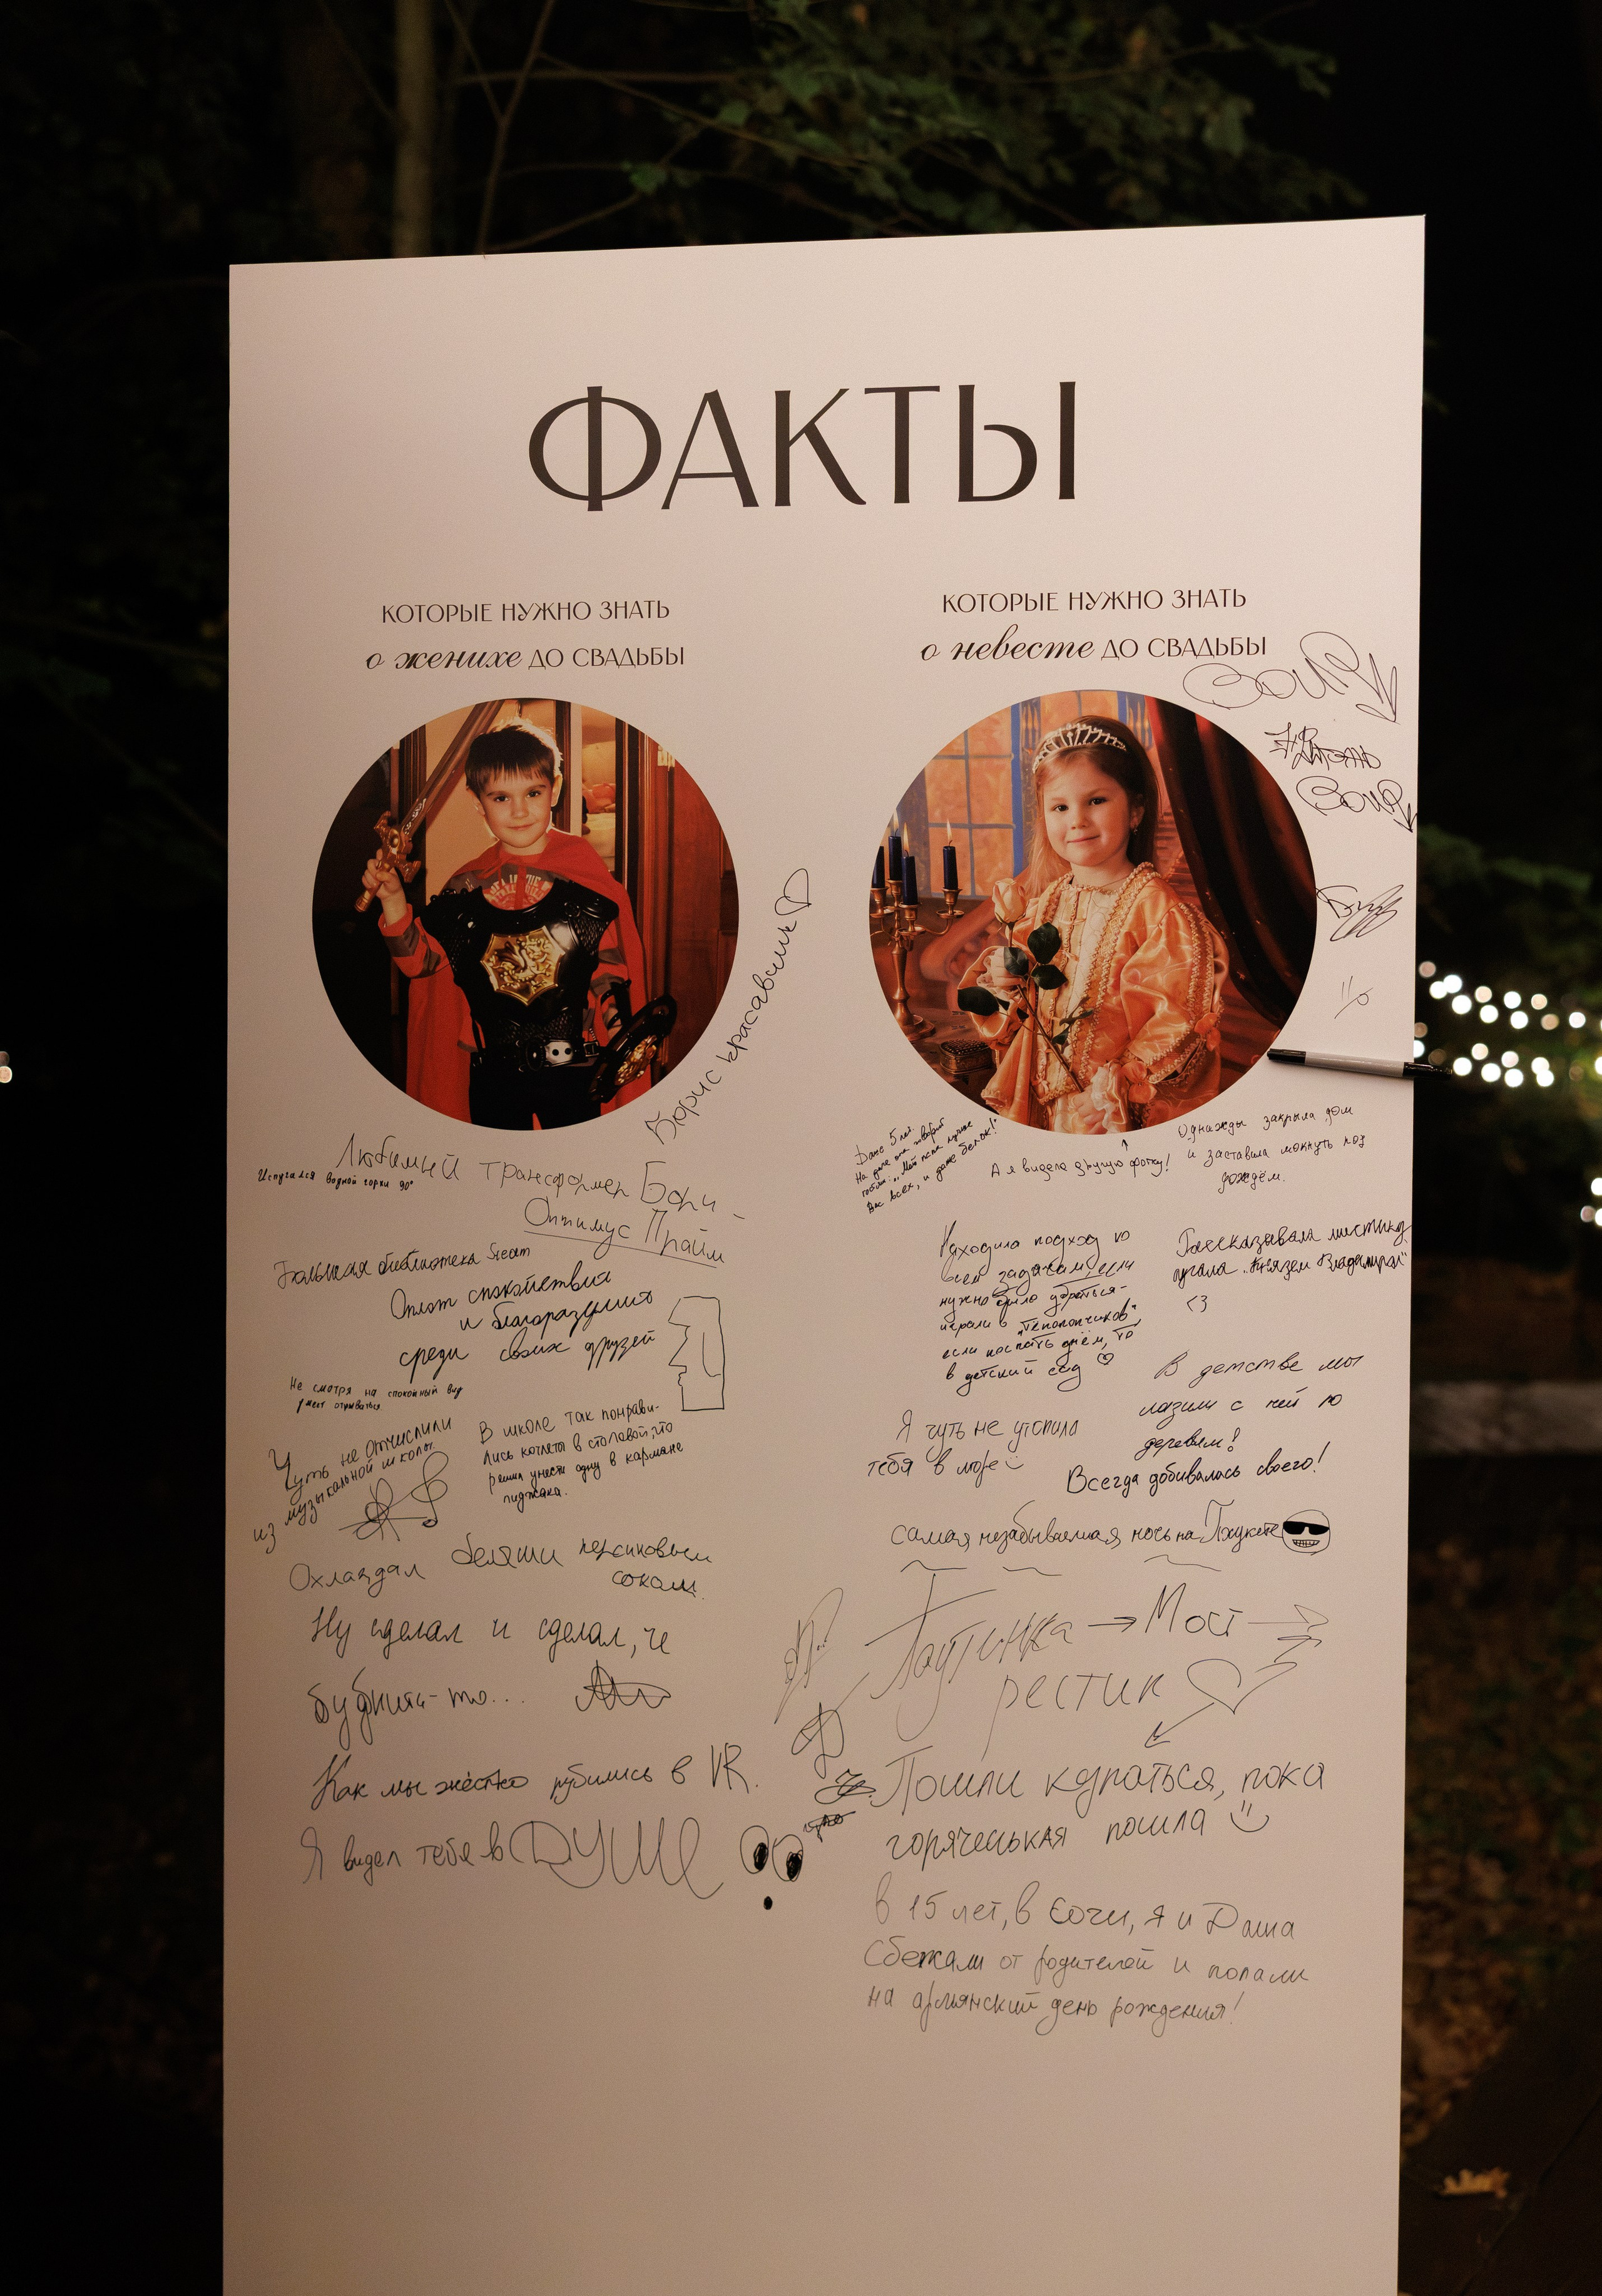 ФАКТЫ
КОТОРЫЕ НУЖНО ЗНАТЬ
о женихе ДО СВАДЬБЫ
Борис красавчик
Любимый трансформер Бори -
Оптимус Прайм
Испугался водной горки 90°
Большая библиотека Steam
Оплот спокойствия
и благоразумия
среди своих друзей
Не смотря на спокойный вид
умеет отрываться
Чуть не отчислили
из музыкальной школы
В школе так понрави-
лись котлеты в столовой, что
решил унести одну в кармане
пиджака.
Охлаждал беляши персиковым
соком.
Ну сделал и сделал, че
бубнить-то...
Как мы жёстко рубились в VR.
Я видел тебя в ДУШе
КОТОРЫЕ НУЖНО ЗНАТЬ
о невесте ДО СВАДЬБЫ
Даше 5 лет.
На даче она
Вас всех, и даже белок!"
А я видела другую фотку!
Однажды закрыла дом
и заставила мокнуть под
дождём.
Находила подход ко
всем задачам, если
нужно было убраться -
играли в
если поспать днём, то
в детский сад
Рассказывала мистику,
пугала "Князем Владимиром"
<3
В детстве мы
лазили с ней по
деревьям!
Я чуть не утопила
тебя в море
Всегда добивалась своего!
самая незабываемая ночь на Пхукете
Паутинка → Мост
рестик
Пошли купаться, пока
горяченькая пошла
В 15 лет, в Сочи, я и Даша
Сбежали от родителей и попали
на армянский день рождения!